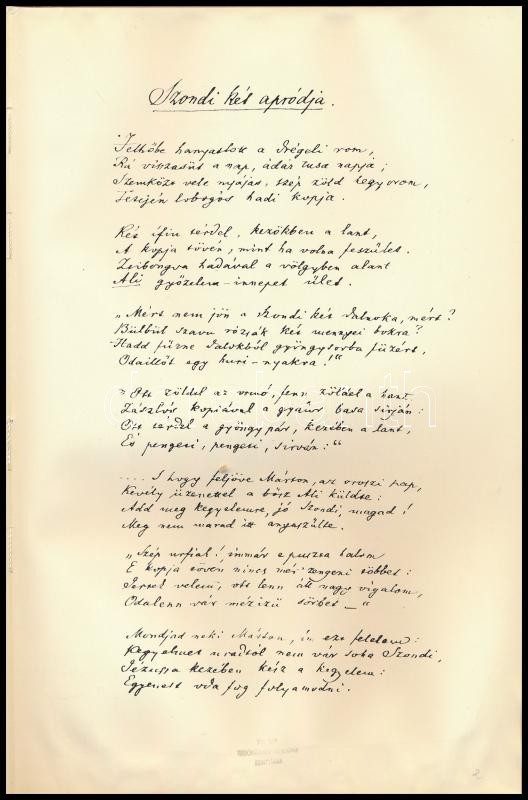 Szondi két apródja.
Felhőbe hanyatlott a drégeli rom,
Rá visszasüt a nap, ádáz tusa napja;
Szemközt vele nyájas, szép zöld hegyorom,
Tetején lobogós hadi kopja.
Két ifiu térdel, kezökben a lant,
A kopja tövén, mint ha volna feszűlet.
Zsibongva hadával a völgyben alant
Ali győzelem-ünnepet ület.
„Mért nem jön a Szondi két dalnoka, mért?
Bülbül szavu rózsák két mennyei bokra?
Hadd fűzne dalokból gyöngysorba füzért,
Odaillőt egy huri-nyakra!"
"Ott zöldel az ormó, fenn zöldel a hant
Zászlós kopiával a gyaur basa sirján:
Ott térdel a gyöngypár, kezében a lant,
És pengeti, pengeti, sirván:"
.... S hogy feljöve Márton, az oroszi pap,
Kevély üzenettel a bősz Ali küldte:
Add meg kegyelemre, jó Szondi, magad!
Meg nem marad itt anyaszülte.
„Szép urfiak! immár e puszta halom
E kopja tövén nincs mér' zengeni többet:
Jertek velem, ott lenn áll nagy vigalom,
Odalenn vár mézizü sörbet –"
Mondjad neki Márton, im ezt felelem:
Kegyelmet uradtól nem vár soha Szondi,
Jézusa kezében kész a kegyelem:
Egyenest oda fog folyamodni.
2